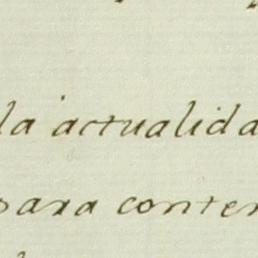 la actualida
para conter